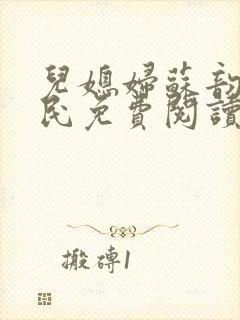 兒媳婦蘇韵
民免費閱讀
搬磚1